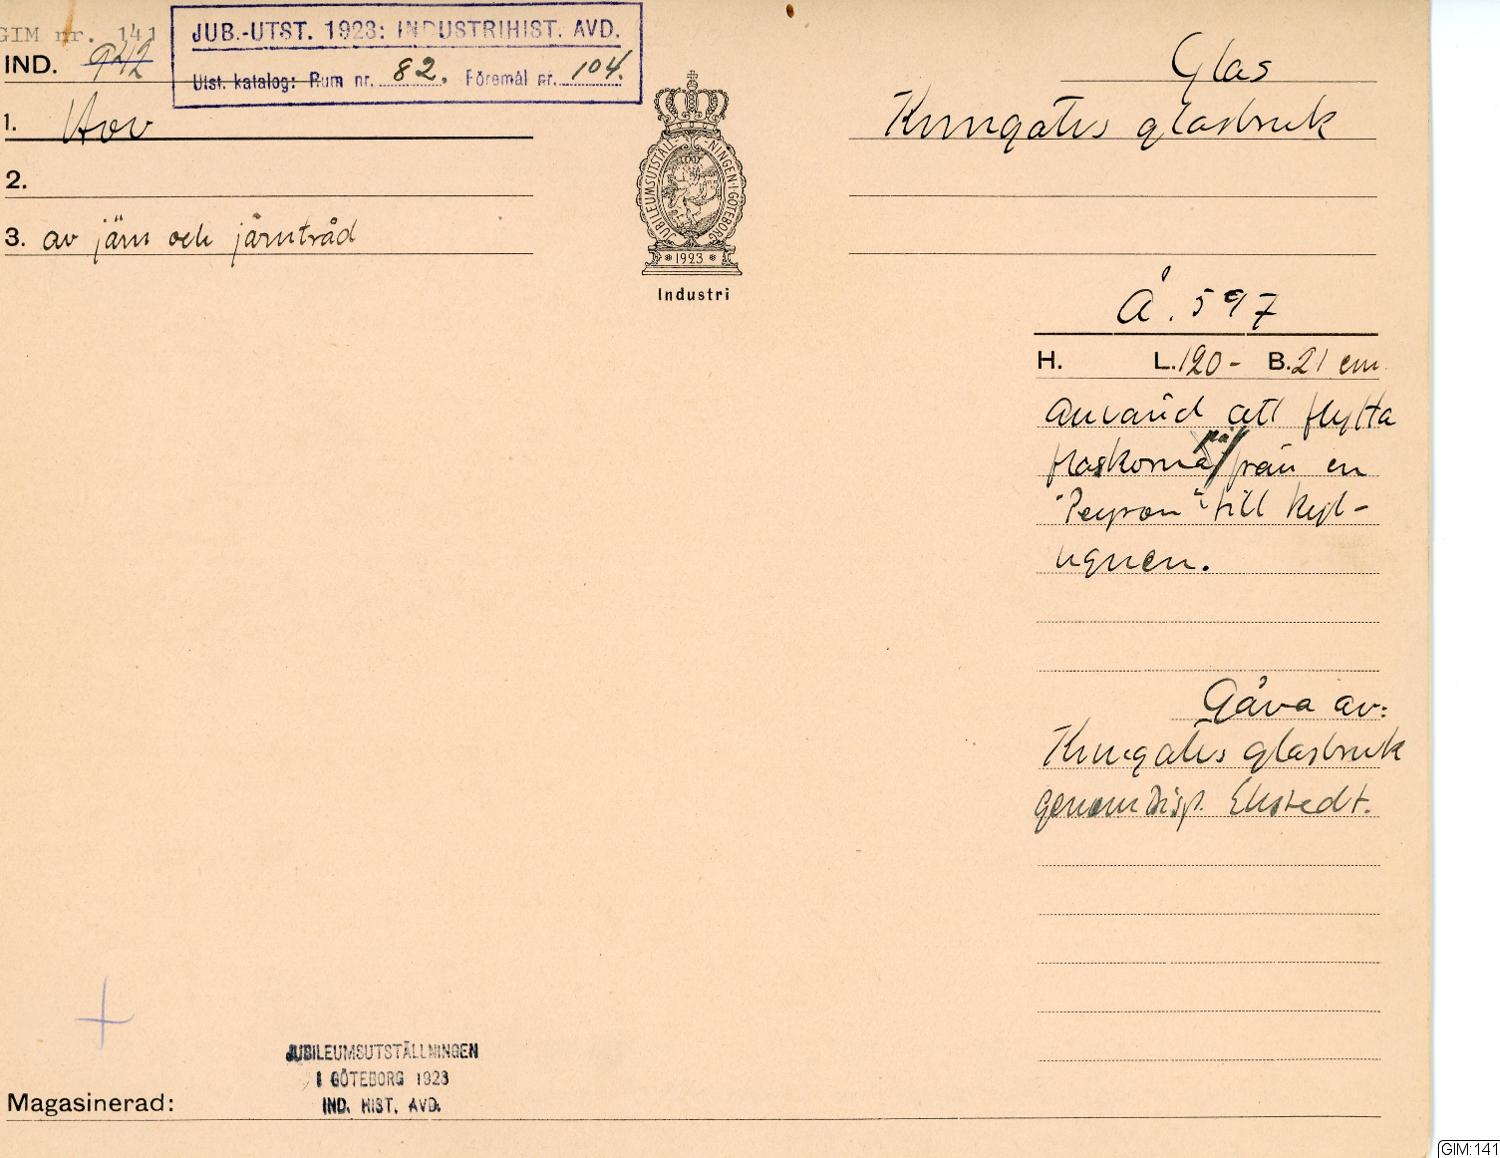 GIM nr. 141
IND. 942
JUB.-UTST. 1923: INDUSTRIHIST. AVD.
Utst. katalog: Rum nr. 82. Föremål nr. 104.
Glas
1. Hov
Kungälvs glasbruk
2.
3. av järn och järntråd
JUBILEUMSUTSTÄLLNINGEN I GÖTEBORG
* 1923 *
Industri
Å. 597
H. L. 120 - B. 21 cm
Använd att flytta
på
flaskorna från en
"Peyron" till kyl-
ugnen.
Gåva av:
Kungälvs glasbruk
genom Disp. Ekstedt.
JUBILEUMSUTSTÄLLNINGEN
I GÖTEBORG 1923
IND. HIST. AVD.
Magasinerad:
GIM:141